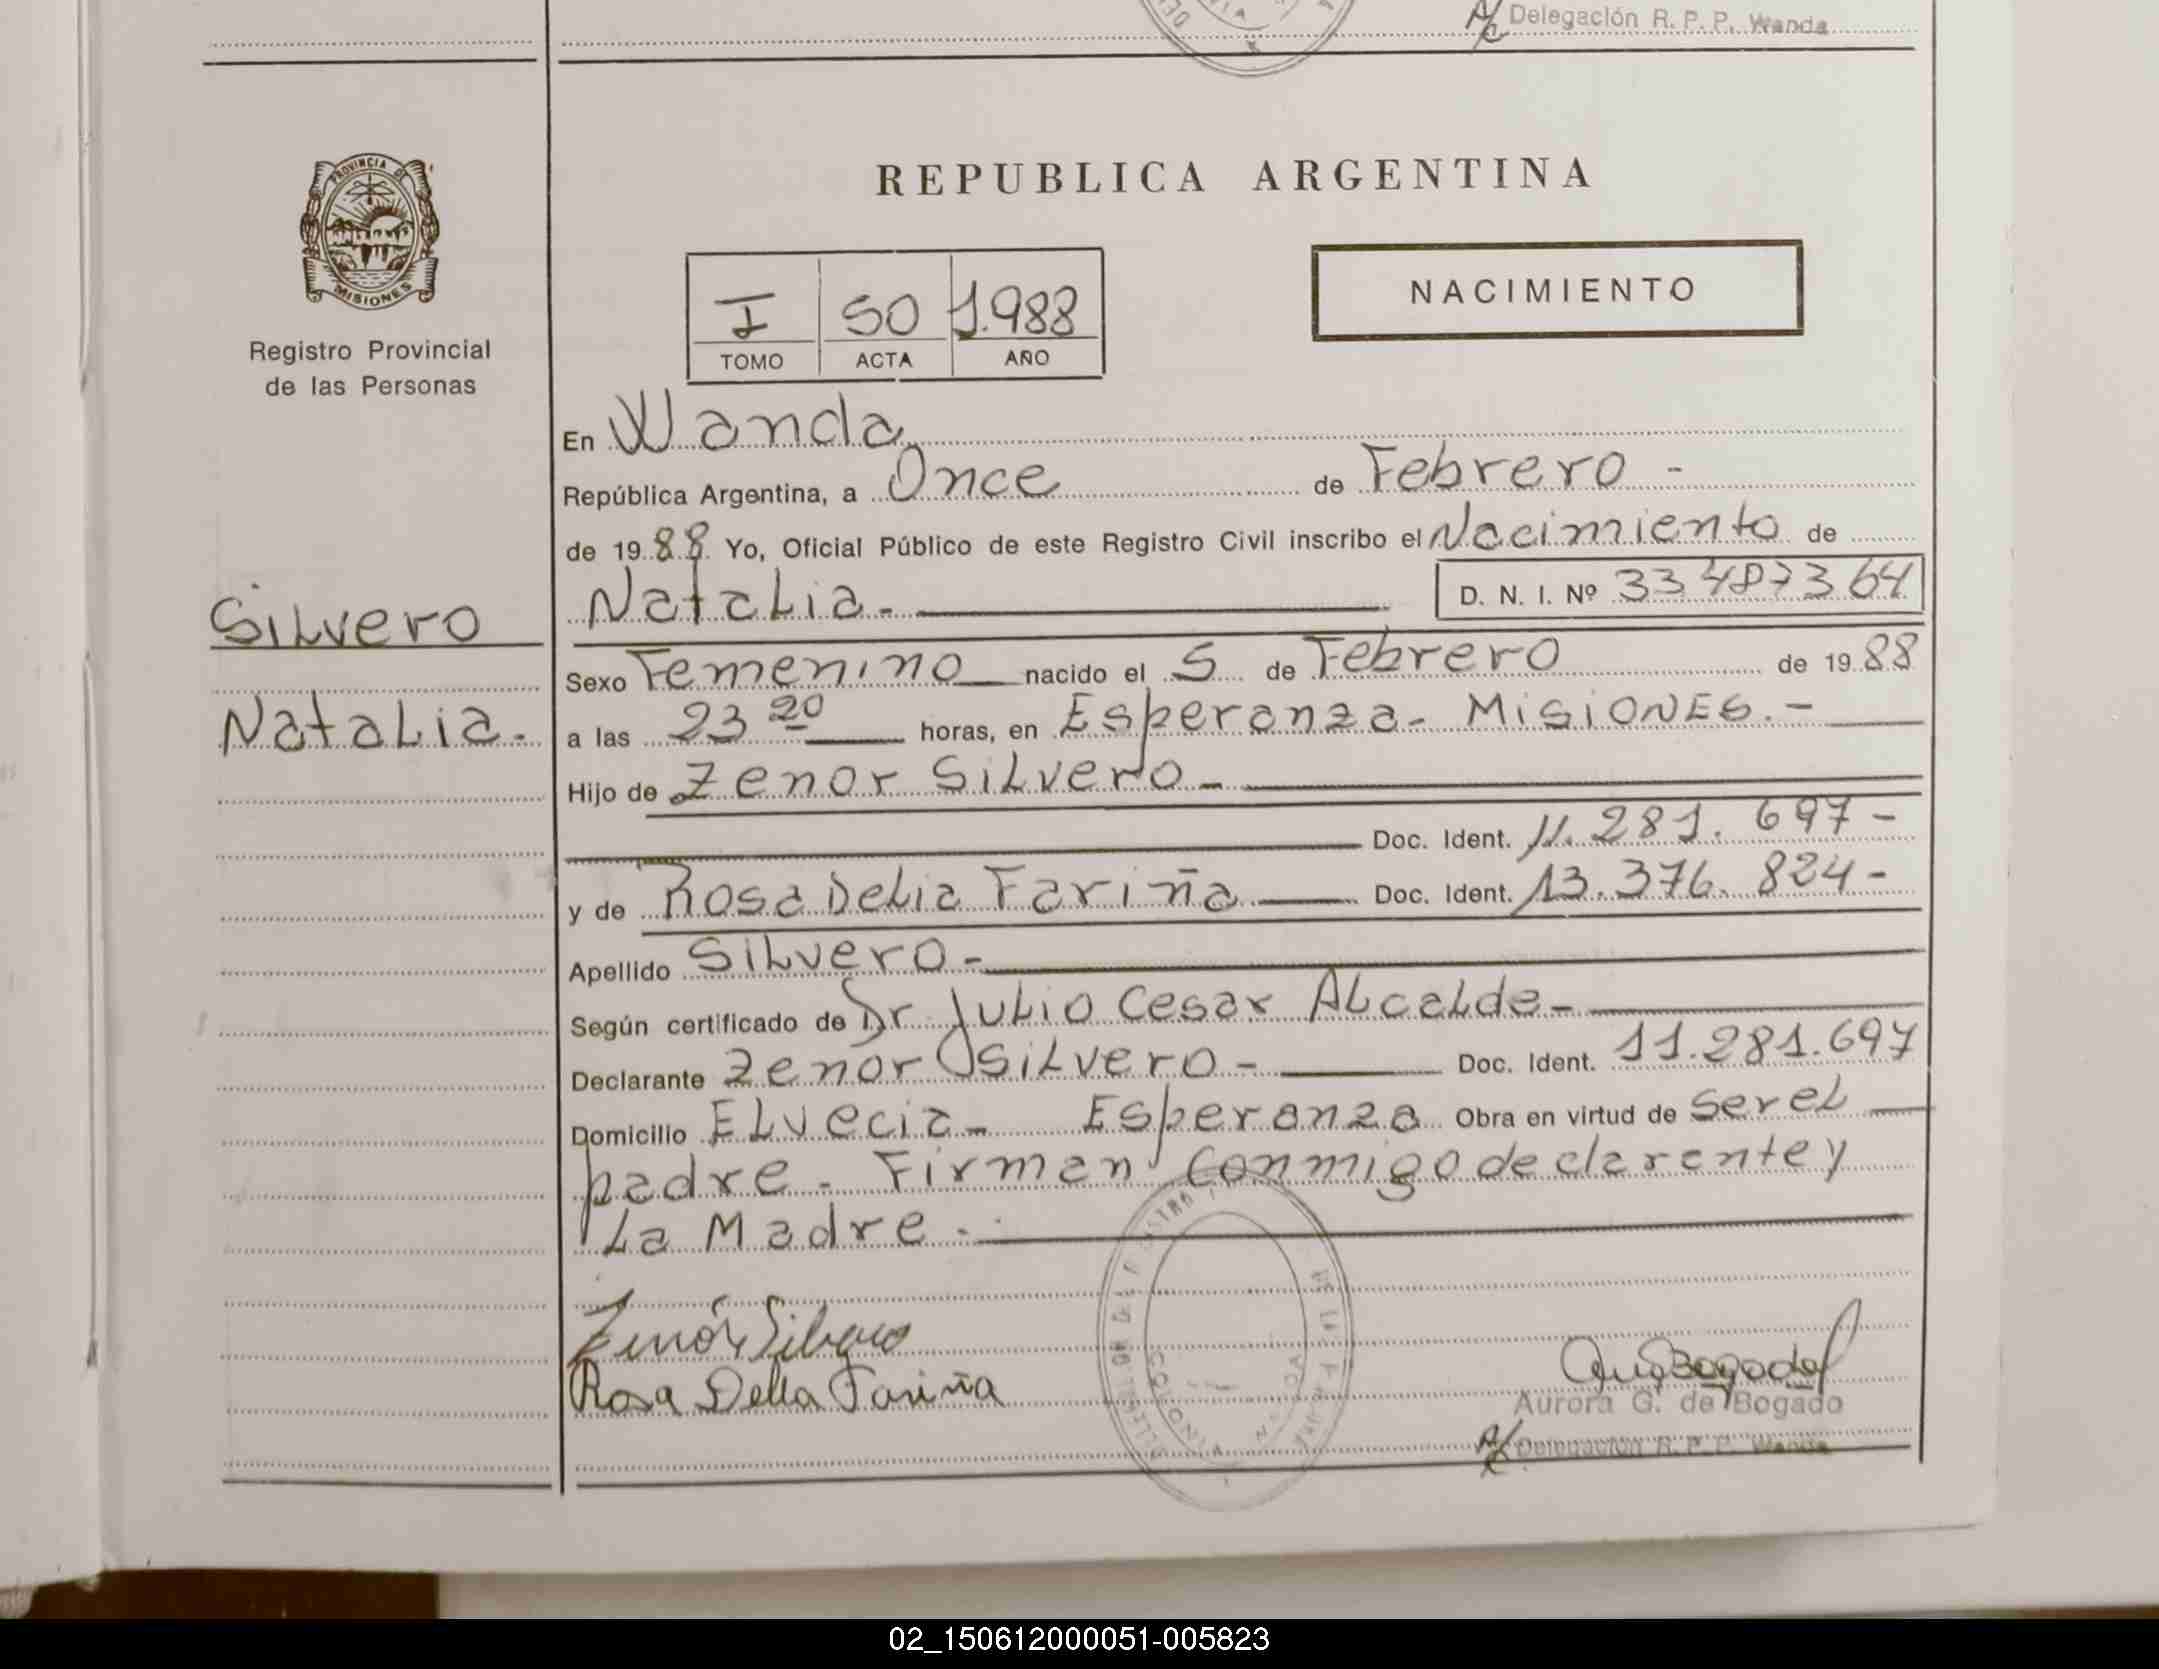 A/C Delegación R. P. P. Wanda
PROVINCIA DE MISIONES
Registro Provincial
de las Personas
REPUBLICA ARGENTINA
I 50 1.988
TOMO ACTA AÑO
NACIMIENTO
En Wanda
República Argentina, a Once de Febrero -
de 19 88 Yo, Oficial Público de este Registro Civil inscribo el Nacimiento de
Natalia.- D. N. I. Nº 33487364
Silvero
Natalia.-
Sexo Femenino nacido el 5 de Febrero de 19 88
a las 23 20 horas, en Esperanza- Misiones.-
Hijo de Zenor Silvero-
Doc. Ident. 11.281.697-
y de Rosa Delia Fariña Doc. Ident. 13.376.824-
Apellido Silvero-
Según certificado de Dr Julio Cesar Alcalde-
Declarante Zenor Silvero- Doc. Ident. 11.281.697
Domicilio Elvecia- Esperanza Obra en virtud de ser el
padre. Firman conmigo declarante y
La Madre.-
Zenór Silvero
Rosa Delia Fariña
Aurora G. de Bogado
A/C Delegación R. P. P. Wanda
02_150612000051-005823